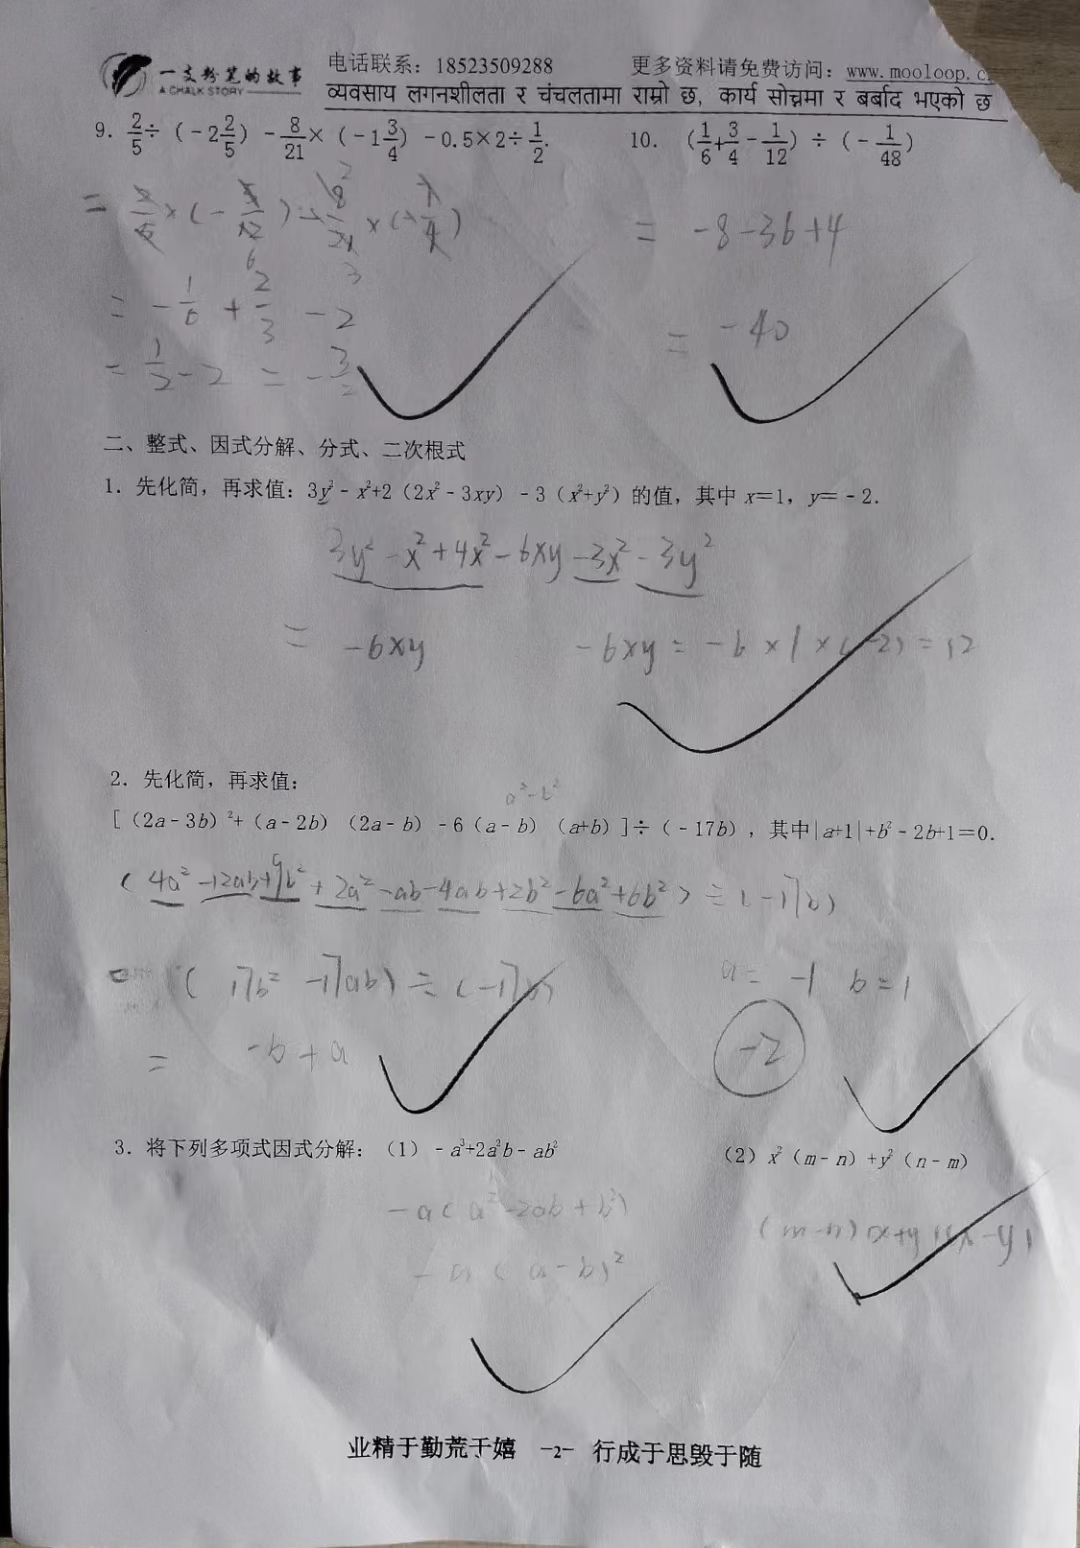 一支粉笔的故事
A CHALK STORY
电话联系：18523509288 更多资料请免费访问：www.mooloop.c
व्यवसाय लगनशीलता र चंचलतामा राम्रो छ, कार्य सोच्नमा र बर्बाद भएको छ
9. 2/5÷（-2 2/5）-8/21×（-1 3/4）-0.5×2÷1/2. 10. （1/6+3/4-1/12）÷（-1/48）
= 2/5×(-5/12)+8/21×(+7/4)
= -8-36+4
= -1/6 + 2/3 - 2
= -40
= 1/2 - 2 = -3/2
二、整式、因式分解、分式、二次根式
1. 先化简，再求值：3y²-x²+2（2x²-3xy）-3（x²+y²）的值，其中 x=1，y=-2.
3y²-x²+4x²-6xy-3x²-3y²
= -6xy -6xy = -6×1×(-2) = 12
2. 先化简，再求值：
a²-b²
[（2a-3b）²+（a-2b）（2a-b）-6（a-b）（a+b）]÷（-17b），其中|a+1|+b²-2b+1=0.
(4a²-12ab+9b²+2a²-ab-4ab+2b²-6a²+6b²)÷(-17b)
= (17b²-17ab)÷(-17b) a=-1 b=1
= -b+a -2
3. 将下列多项式因式分解：（1）-a³+2a²b-ab² （2）x²（m-n）+y²（n-m）
-a(a²-2ab+b²) (m-n)(x+y)(x-y)
-a(a-b)²
业精于勤荒于嬉 -2- 行成于思毁于随